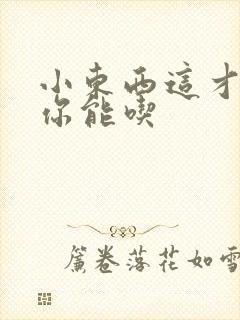 小東西這才
你能喫
簾卷落花如雪